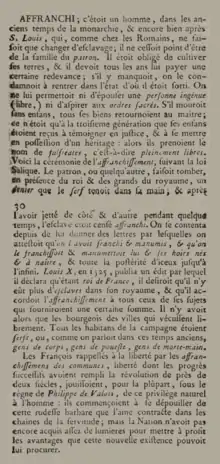 AFFRANCHI; c'étoit un homme, dans les an-
ciens temps de la monarchie, & encore bien après
S. Louis, qui, comme chez les Romains, ne fai-
soit que changer d'esclavage; il ne cessoit point d'être
de la famille du patron. Il étoit obligé de cultiver
ses terres, & il devoit tous les ans lui payer une
certaine redevance; s'il y manquoit, on le con-
damnoit à rentrer dans l'état d'où il étoit sorti. On
ne lui permettoit ni d'épouser une personne ingénue
(libre,) ni d'aspirer aux ordres sacrés. S'il mouroit
sans enfans, tous ses biens retournoient au maître;
ce n'étoit qu'à la troisieme génération que ses enfans
étoient reçus à témoigner en justice, & à se mettre
en possession d'un héritage: alors ils prenoient le
nom de c'est-à-dire pleinement libres.
Voici la cérémonie de l'affranchissement, suivant la loi
Salique. Le patron, ou quelqu'autre, faisoit tomber,
en présence du roi & des grands du royaume, un
denier que le serf tenoit dans la main; & après
30
l'avoir jetté de côté & d'autre pendant quelque
temps, l'esclave étoit censé affranchi. On se contenta
depuis de lui donner des lettres par lesquelles on
attestoit qu'on l'avoit franchi & manumis, & qu'on
le franchissoit & manumettoit lui & ses hoirs nés
& à naître, & toute la postérité d'ieux jusqu'à
l'infini. Louis X, en 1325, publia un édit par lequel
il déclara qu'étant roi de France, il desiroit qu'il n'y
eût plus d'esclaves dans son royaume, & qu'il ac-
cordoit l'affranchissement à tous ceux de ses sujets
qui fourniroient une certaine somme. Il n'y avoit
alors que les bourgeois des villes qui vécussent li-
brement. Tous les habitans de la campagne étoient
serfs, ou, comme on parloit dans ces temps anciens,
gens de corps, gens de pouesse, gens de morte-main.
Les François rappellés à la liberté par les affran-
chissemens des communes, liberté dont les progrès
successifs avoient rempli la révolution de près de
deux siècles, jouissoient, pour la plupart, sous le
règne de Philippe de Valois, de ce privilège naturel
à l'homme: ils commençoient à se dépouiller de
cette rudesse barbare que l'ame contracte dans les
chaines de la servitude; mais la Nation n'avoit pas
encore acquis assez de lumieres pour mettre à profit
les avantages que cette nouvelle existence pouvoit
lui procurer.